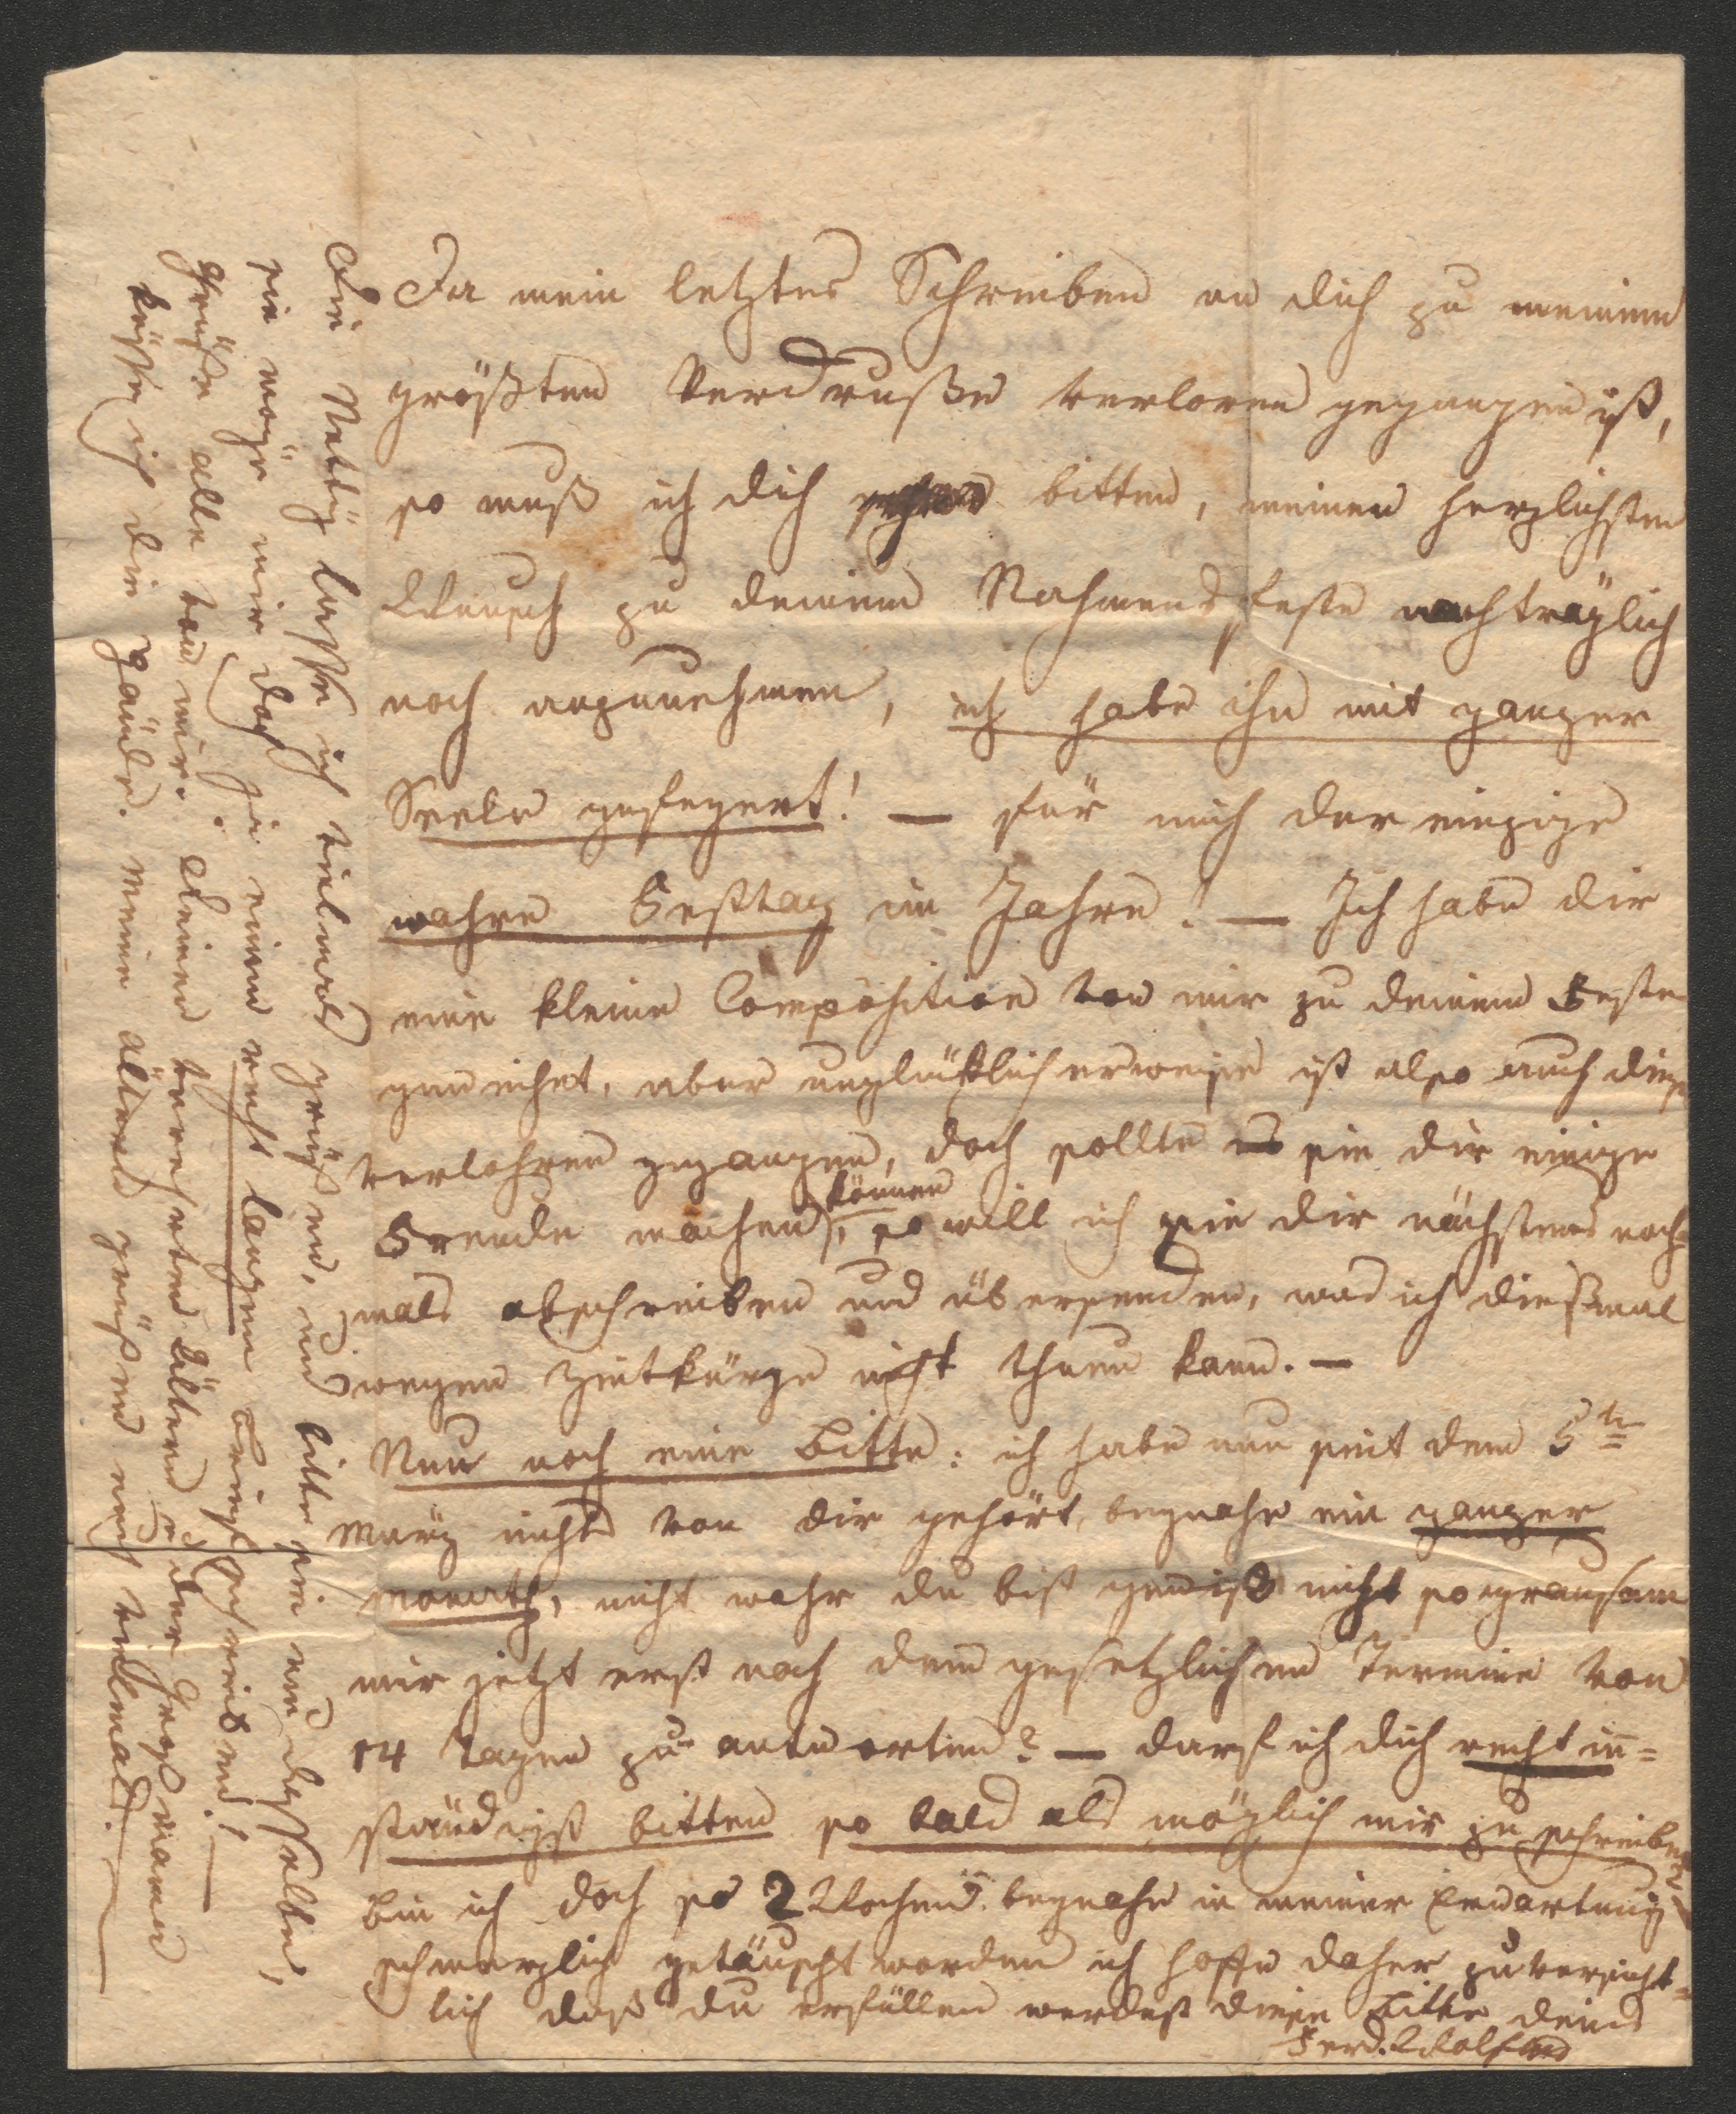 Da mein letztes Schreiben an dich zu meinem
größten Verdruße verloren gegangen ist,
so muß ich dich bitten, meinen herzlichsten
Wunsch zu deinem Nahmensfeste nachträglich
noch anzunehmen, ich habe ihn mit ganzer
Seele gefeyert! — für mich der einzige
wahre Festtag im Jahre! — Ich habe dir
eine kleine Composition von mir zu deinem Feste
geweihet, aber unglücklicherweise ist also auch diese
verlohren gegangen, doch sollte sie dir einige
Freude machen können, so will ich sie dir nächstens noch=
mals abschreiben und übersenden, was ich dießmal
wegen Zeitkürze nicht thuen kann. —
Nun noch eine Bitte: ich habe nun seit dem 5te
März nichts von dir gehört, beynahe ein ganzer
Monath, nicht wahr du bist gewiß nicht so grausam
mir jetzt erst nach dem gesetzlichen Termine von
14 Tagen zu antworten? — darf ich dich recht in=
ständigst bitten so bald als möglich mir zu schreiben
bin ich doch so 2 Wochen beynahe in meiner Erwartung
schmerzlich getäuscht worden ich hoffe daher zuversicht=
lich daß du erfüllen werdest diese Bitte deines
Ferd. Wolf
Die Netty lasse ich vielmals grüßen, und bitte sie um dasselbe,
sie möge mir doch ja einen recht langen Brief schreiben! —
Grüße alle von mir. Deinen verehrten Ältern u. der Großmama
küsse ich die Hände. Meine Ältern grüßen euch vielmals. —